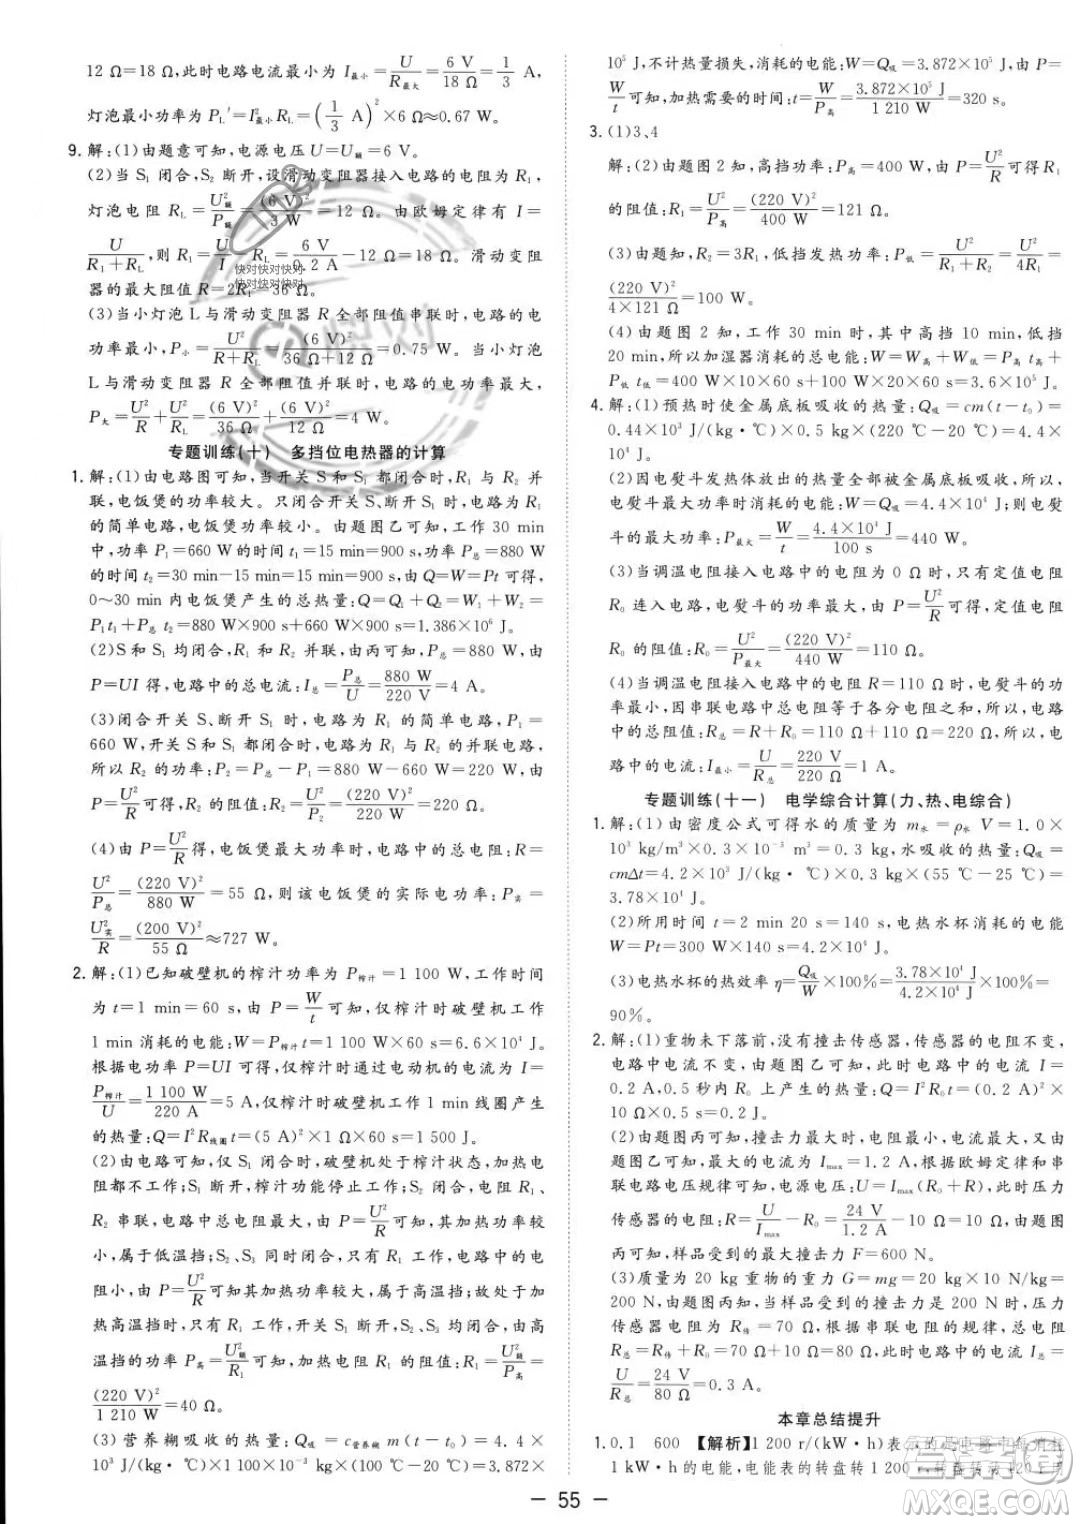 12 Ω=18 Ω，此时电路电流最小为 I最小=U/R最大=6 V/18 Ω=1/3 A，
灯泡最小功率为 P_L′=I²最小R_L=(1/3 A)²×6 Ω≈0.67 W。
9. 解：(1)由题意可知，电源电压U=U额=6 V。
(2)当 S₁ 闭合，S₂ 断开，设滑动变阻器接入电路的电阻为 R₁，
灯泡电阻 R_L=U²额/P额=(6 V)²/3 W=12 Ω。由欧姆定律有 I=
U/(R₁+R_L)，则 R₁=U/I－R_L=6 V/0.2 A－12 Ω=18 Ω。滑动变阻
器的最大阻值 R=2R₁=36 Ω。
(3)当小灯泡 L 与滑动变阻器 R 全部阻值串联时，电路的电功
率最小，P小=U²/(R+R_L)=(6 V)²/(36 Ω+12 Ω)=0.75 W。当小灯泡
L 与滑动变阻器 R 全部阻值并联时，电路的电功率最大，
P大=U²/R+U²/R_L=(6 V)²/36 Ω+(6 V)²/12 Ω=4 W。
专题训练(十) 多挡位电热器的计算
1. 解：(1)由电路图可知，当开关 S 和 S₁ 都闭合时，R₁ 与 R₂ 并
联，电饭煲的功率较大。只闭合开关 S、断开 S₁ 时，电路为 R₁
的简单电路，电饭煲功率较小。由题图乙可知，工作 30 min
中，功率 P₁=660 W 的时间 t₁=15 min=900 s，P总=880 W
的时间 t₂=30 min－15 min=15 min=900 s，由 Q=W=Pt 可知，
0～30 min 内电饭煲产生的总热量：Q=Q₁+Q₂=W₁+W₂=
P₁t₁+P总 t₂=880 W×900 s+660 W×900 s=1.386×10⁶ J。
(2)S和S₁ 均闭合时，R₁ 和 R₂ 并联，由丙可知，P总=880 W，由
P=UI 得，电路中的总电流：I总=P总/U=880 W/220 V=4 A。
(3)闭合开关 S、断开 S₁ 时，电路为 R₁ 的简单电路，P₁=
660 W，当开关 S 和 S₁ 都闭合时，电路为 R₁ 和 R₂ 的并联电路，
所以 R₂ 的功率：P₂=P总－P₁=880 W－660 W=220 W，由
P=U²/R可得，R₂ 的阻值：R₂=U²/P₂=(220 V)²/220 W=220 Ω。
(4)由 P=U²/R得，电饭煲最大功率时，电路中的总电阻：R=
U²/P总=(220 V)²/880 W=55 Ω，则该电饭煲的实际电功率：P实=
U²实/R=(200 V)²/55 Ω≈727 W。
2. 解：(1)已知破壁机的榨汁功率为 P榨汁=1 100 W，工作时间
为 t=1 min=60 s，由 P=W/t可知，仅榨汁时破壁机工作
1 min 消耗的电能：W=P榨汁t=1 100 W×60 s=6.6×10⁴ J。
根据电功率 P=UI 可知，仅榨汁时通过电动机的电流为 I=
P榨汁/U=1 100 W/220 A=5 A，仅榨汁时破壁机工作 1 min 线圈产生
的热量：Q=I²R线圈t=(5 A)²×1 Ω×60 s=1 500 J。
(2)由电路可知，仅 S₁ 闭合时，破壁机处于榨汁状态，加热电
阻都不工作；S₁ 断开，榨汁功能停止工作；S₂ 断开时，R₁、
R₂ 串联，电路中总电阻最大，由 P=U²/R可知，其加热功率较
小，属于低温挡；S₂、S₃ 同时闭合时，只有 R₁ 工作，电路中的电
阻小，由 P=U²/R可知，其加热功率较大，属于高温挡；故处于加
热高温挡工作时，开关 S₁ 断开，S₂、S₃ 都闭合。由高
温挡的功率 P高=U²额/R₁可知，加热电阻 R₁ 的阻值：R₁=U²额/P高=
(220 V)²/1 210 W=40 Ω。
(3)营养糊吸收的热量：Q吸=c营养糊 m(t－t₀)=
3.872×
10⁵ J，不计热量损失，消耗的电能：W=Q吸=3.872×10⁵ J，由 P=
W/t可知，加热需要的时间：t=W/P高=3.872×10⁵ J/1 210 W=320 s。
3. (1)3、4
解：(2)由题图 2 知，高挡功率：P高=400 W，由 P=U²/R可得 R₁
的阻值：R₁=U²/P高=(220 V)²/400 W=121 Ω。
(3)由题知，R₂=3R₁，低挡发热功率：P低=U²/(R₁+R₂)=U²/4R₁=
(220 V)²/(4×121 Ω)=100 W。
(4)由题图 2 知，工作 30 min 时，其中高挡 10 min，低挡
20 min，所以加湿器消耗的总电能：W=W高+W低=P高 t高+
P低 t低=400 W×10×60 s+100 W×20×60 s=3.6×10⁵ J。
4. 解：(1)预热时使金属底板吸收的热量：Q吸=cm(t－t₀)=
0.44×10³ J/(kg·℃)×0.5 kg×(220 ℃－20 ℃)=4.4×
10⁴ J。
(2)因电熨斗发热体的热量全部被金属底板吸收，所以，电熨
斗最大功率时消耗的电能：W=Q吸=4.4×10⁴ J；电熨
斗的最大功率：P最大=W/t=4.4×10⁴ J/100 s=440 W。
(3)当调温电阻接入电路中的阻值为 0 Ω 时，只有定值电阻
R₀ 连入电路，电熨斗的功率最大，由 P=U²/R可得，定值电阻
R₀ 的阻值：R₀=U²/P最大=(220 V)²/440 W=110 Ω。
(4)当调温电阻接入电路中的电阻 R=110 Ω 时，电熨斗的功
率最小，因串联电路中总电阻等于各分电阻之和，所以，电路中
的总阻值：R总=R+R₀=110 Ω+110 Ω=220 Ω，电
路中的电流：I最小=U/R总=220 V/220 Ω=1 A。
专题训练(十一) 电学综合计算(力、热、电综合)
1. 解：(1)由密度公式可得水的质量为 m水=ρ水 V=1.0×
10³ kg/m³×0.3×10⁻³ m³=0.3 kg，水吸收的热量：Q吸=
cmΔt=4.2×10³ J/(kg·℃)×0.3 kg×(55 ℃－25 ℃)=
3.78×10⁴ J。
(2)所用时间 t=2 min 20 s=140 s，电热水杯消耗的电能
W=Pt=300 W×140 s=4.2×10⁴ J。
(3)电热水杯的热效率 η=Q吸/W×100%=3.78×10⁴ J/4.2×10⁴ J×100%=
90%。
2. 解：(1)重物未下落前，没有撞击传感器，传感器的电阻不变，
电路中电流最小，由题图乙可知，此时电路中的电流 I=
0.2 A，0.5 秒内 R₀ 上产生的热量：Q=I²R₀t=(0.2 A)²×
10 Ω×0.5 s=0.2 J。
(2)由题图丙可知，撞击力最大时，电阻最小，电流最大，又由
题图乙可知，最大的电流为 Imax=1.2 A，根据欧姆定律和串
联电路电压规律可知，电源电压：U=Imax(R₀+R)，此时压力
传感器的电阻：R=U/Imax－R₀=24 V/1.2 A－10 Ω=10 Ω，由题图
丙可知，样品受到的最大撞击力 F=600 N。
(3)质量为 20 kg 重物的重力 G=mg=20 kg×10 N/kg=
200 N，由题图丙知，当样品受到的撞击力是 200 N 时，压力
传感器电阻 R传=70 Ω，根据串联电阻的规律，总电阻
R总=R传+R₀=70 Ω+10 Ω=80 Ω，此时电路中的电流 I总=
U/R总=24 V/80 Ω=0.3 A。
本章总结提升
1. 0.1 600 【解析】1 200 r/(kW·h)表示的是电路中每消耗
1 kW·h 的电能，电能表的转盘转 1 200 r，转盘转动120 r 用
快对快对快对
快对快对快对
－ 55 －
MXQE.COM